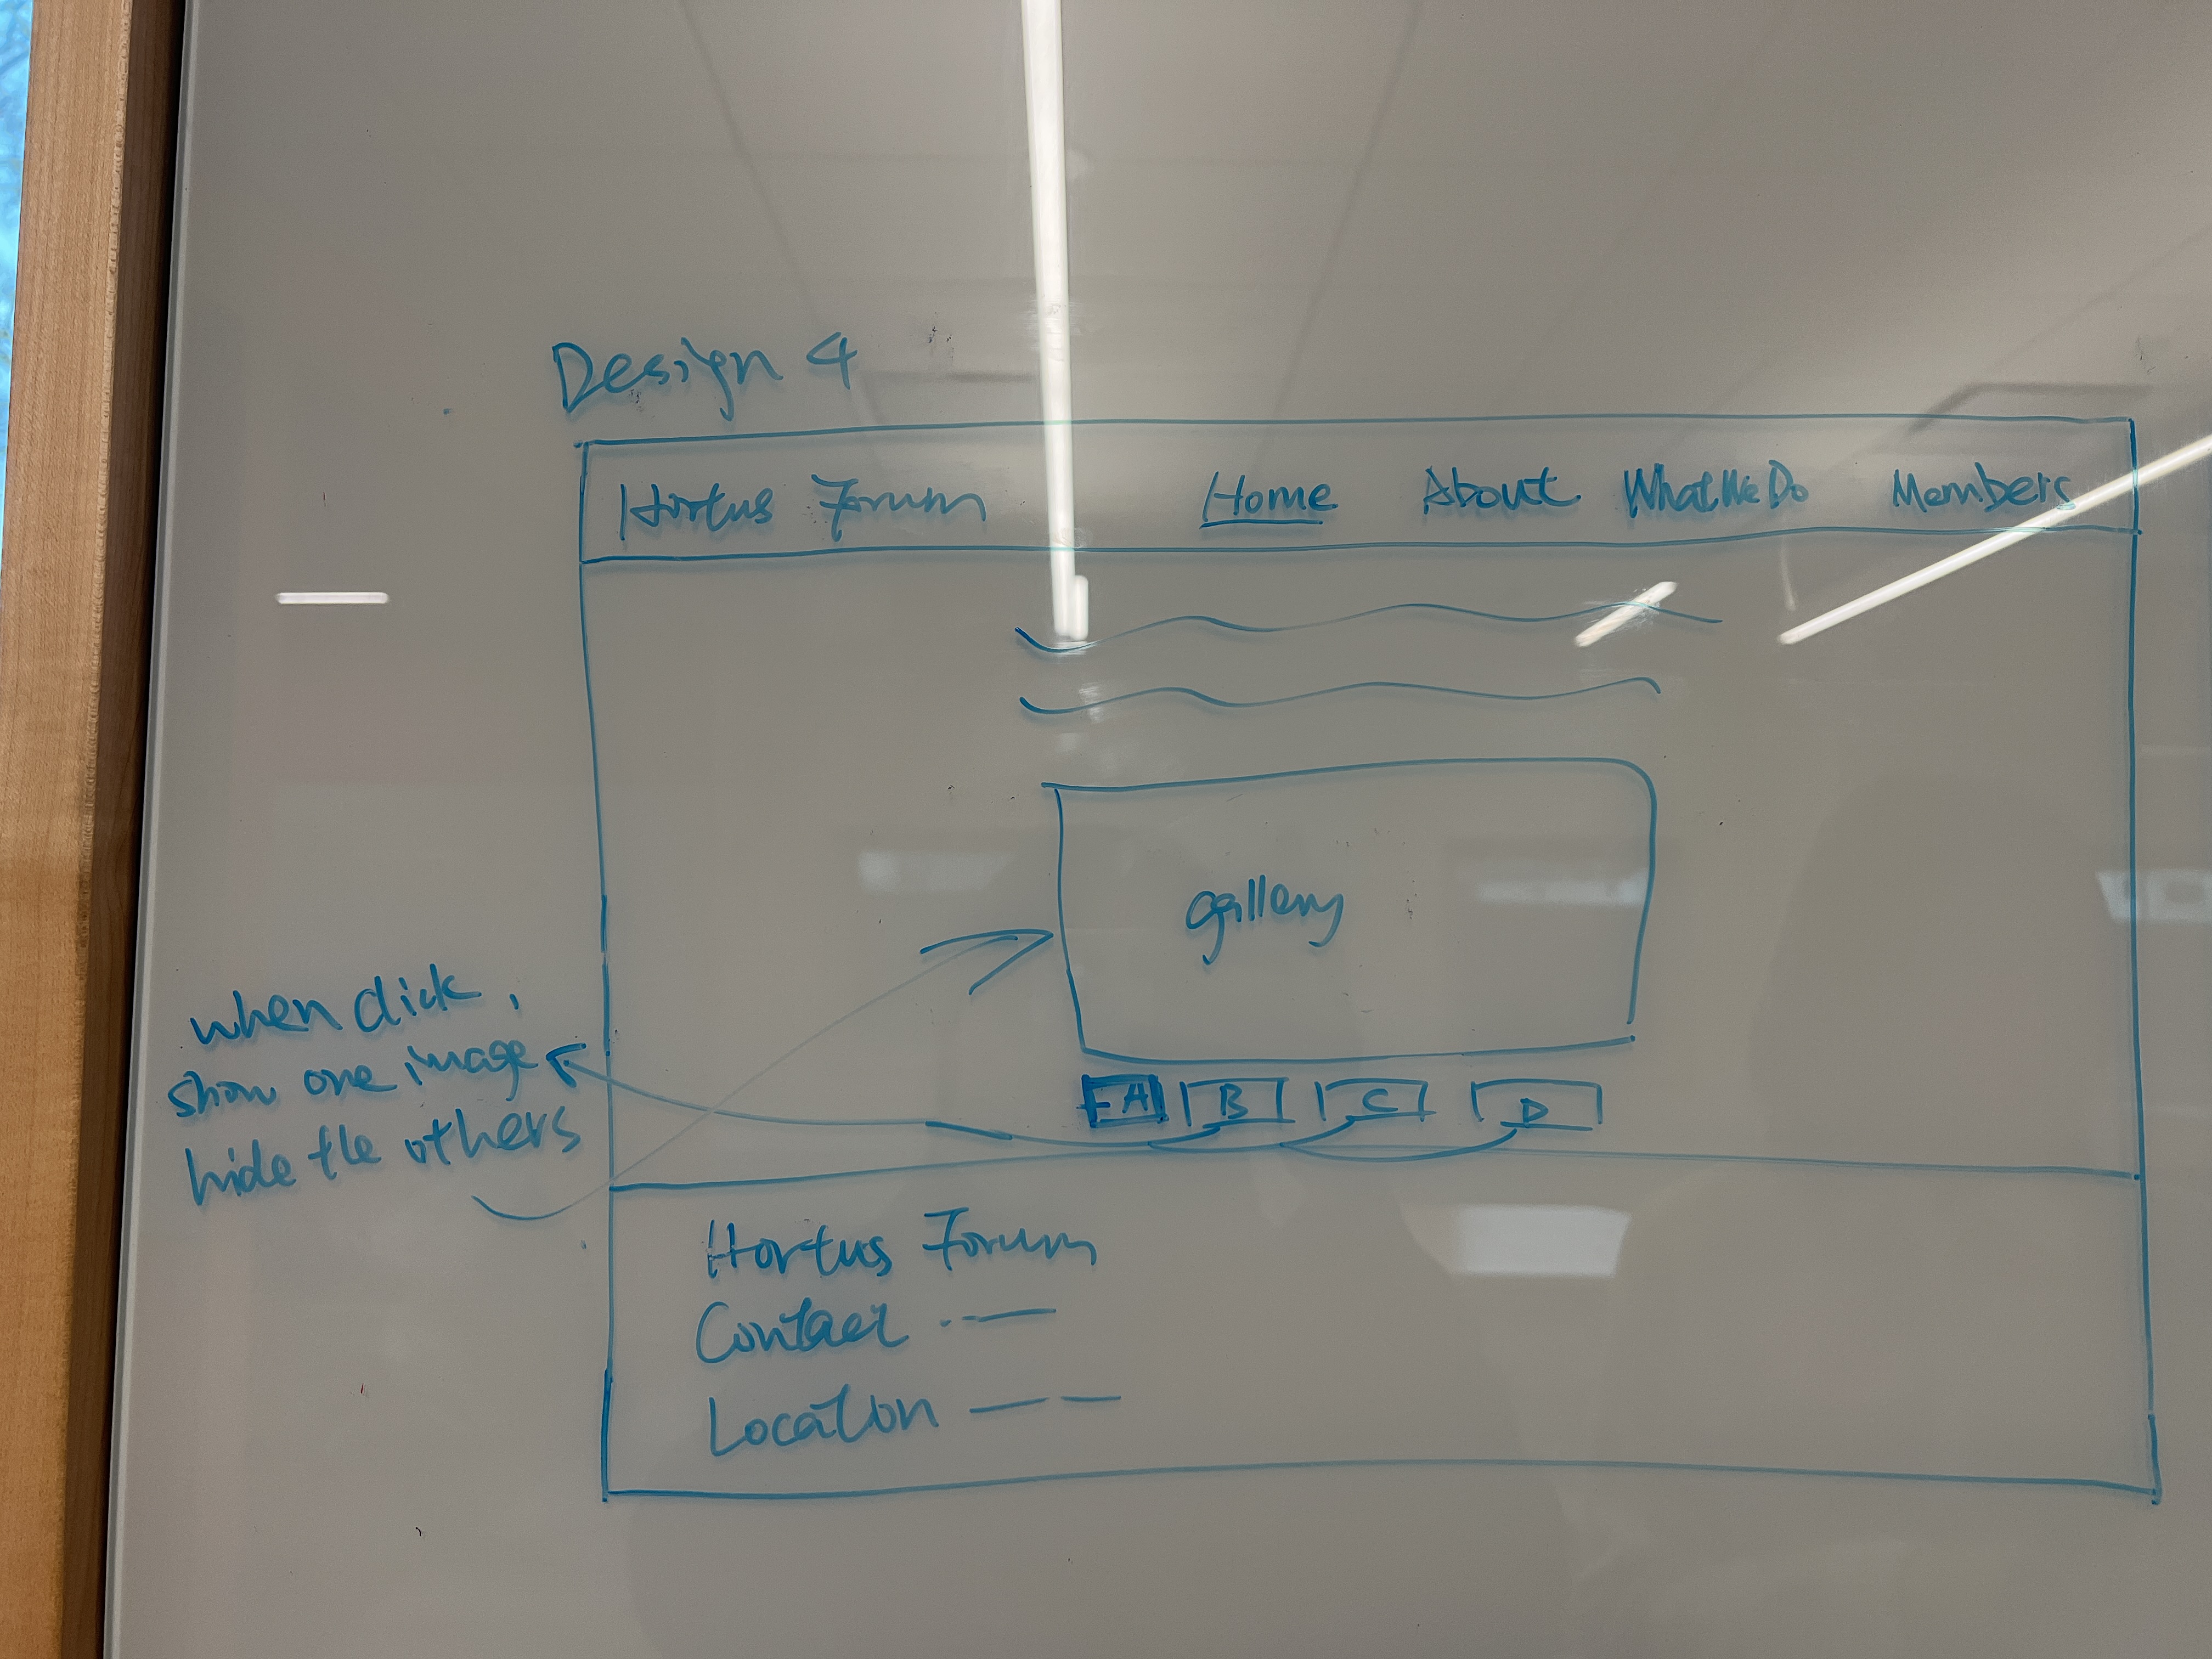 Design 4
Hortus Forum Home About What We Do Members
gallery
when click,
show one image
hide the others
A B C D
Hortus Forum
Contact
Location